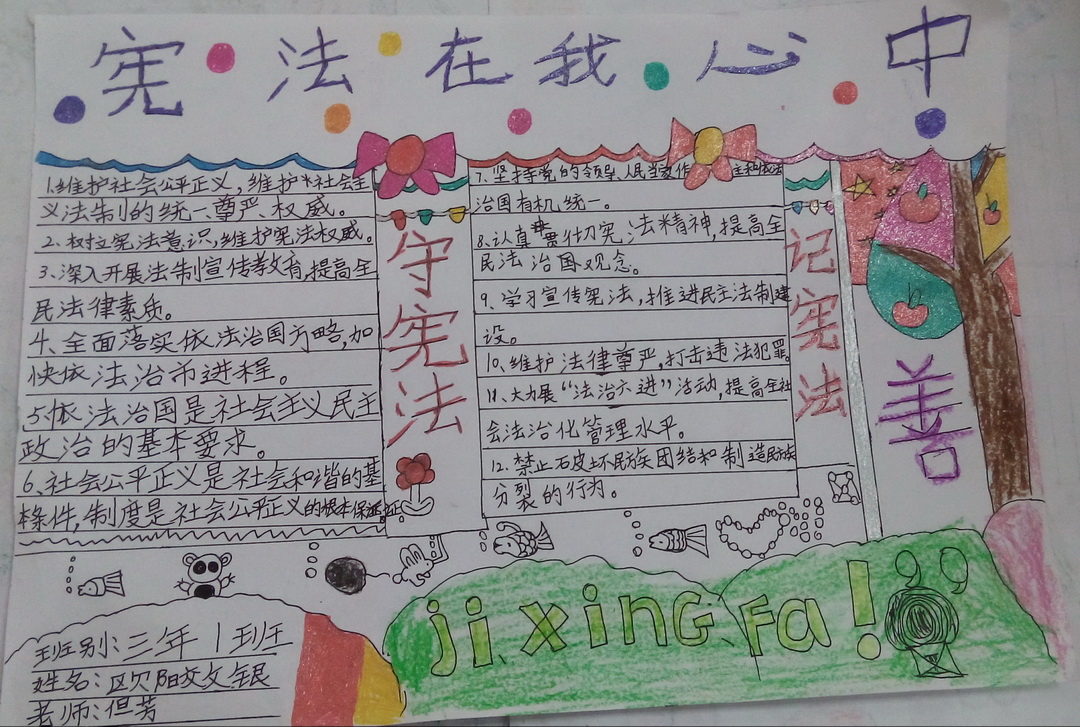 宪法在我心中
1.维护社会公平正义,维护社会主
义法制的统一、尊严、权威。
2、树立宪法意识,维护宪法权威。
3、深入开展法制宣传教育,提高全
民法律素质。
4、全面落实依法治国方略,加
快依法治市进程。
5、依法治国是社会主义民主
政治的基本要求。
6、社会公平正义是社会和谐的基
本条件,制度是社会公平正义的根本保证。
守宪法
7、坚持党的领导、人民当家作
治国有机统一。
8、认真贯彻宪法精神,提高全
民法治国观念。
9、学习宣传宪法,推进民主法制建
设。
10、维护法律尊严,打击违法犯罪。
11、大力展“法治六进”活动,提高全社
会法治化管理水平。
12、禁止石皮坏民族团结和制造民族
分裂的行为。
记宪法
善
ji xing fa!
班别:三年1班
姓名:区欠阳文银
老师:但芳